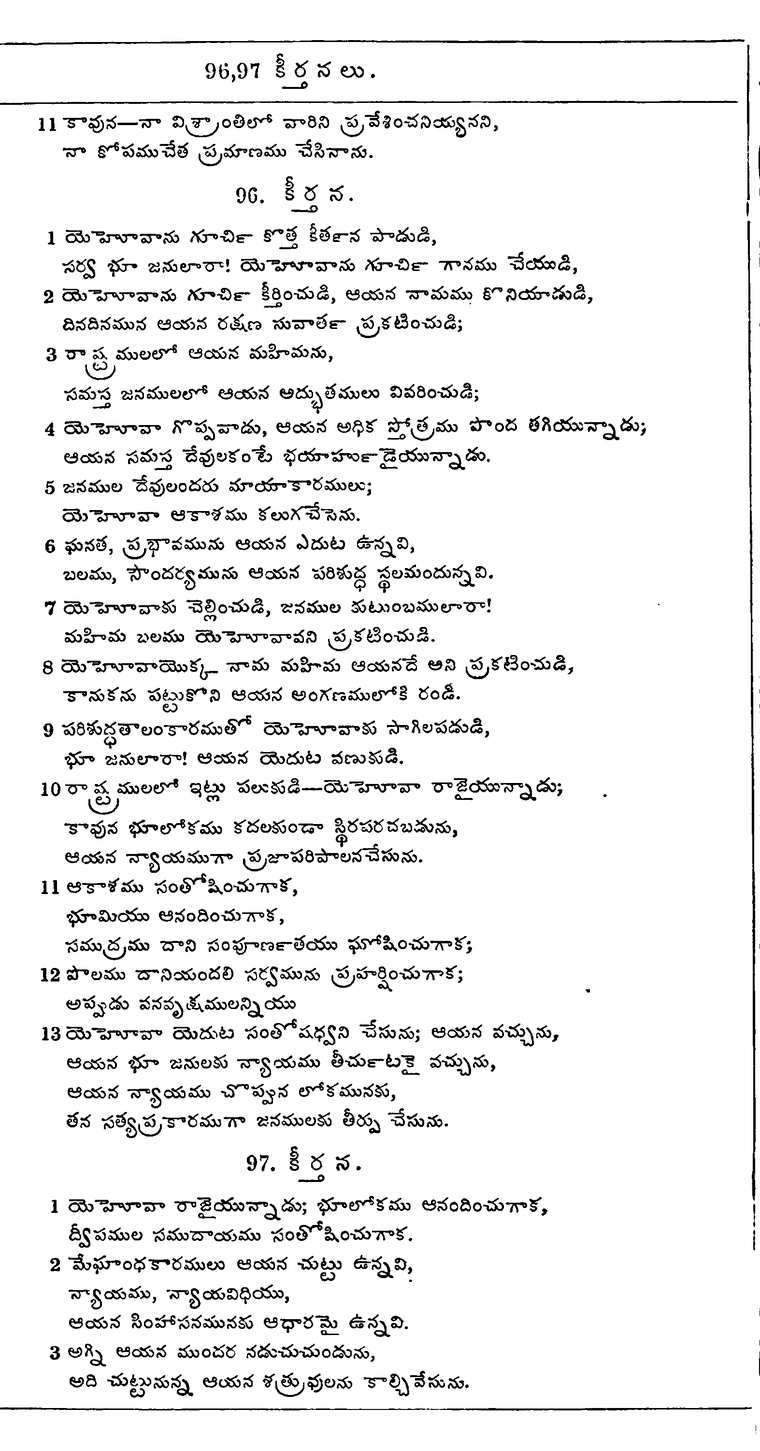 96,97 కీర్తనలు.
11 కావున—నా విశ్రాంతిలో వారిని ప్రవేశించనియ్యనని,
నా కోపముచేత ప్రమాణము చేసినాను.
96. కీర్తన.
1 యెహెూవాను గూచి౯ కొత్త కీత౯న పాడుడి,
సర్వ భూ జనులారా! యెహెూవాను గూచి౯ గానము చేయుడి,
2 యెహెూవాను గూచి౯ కీర్తించుడి, ఆయన నామము కొనియాడుడి,
దినదినమున ఆయన రక్షణ సువాత౯ ప్రకటించుడి;
3 రాష్ట్రములలో ఆయన మహిమను,
సమస్త జనములలో ఆయన అద్భుతములు వివరించుడి;
4 యెహెూవా గొప్పవాడు, ఆయన అధిక స్తోత్రము పొంద తగియున్నాడు;
ఆయన సమస్త దేవులకంటే భయాహు౯డైయున్నాడు.
5 జనముల దేవులందరు మాయాకారములు;
యెహెూవా ఆకాశము కలుగచేసెను.
6 ఘనత, ప్రభావమును ఆయన ఎదుట ఉన్నవి,
బలము, సౌందర్యమును ఆయన పరిశుద్ధ స్థలమందున్నవి.
7 యెహెూవాకు చెల్లించుడి, జనముల కుటుంబములారా!
మహిమ బలము యెహెూవావని ప్రకటించుడి.
8 యెహెూవాయొక్క నామ మహిమ ఆయనదే అని ప్రకటించుడి,
కానుకను పట్టుకొని ఆయన అంగణములోకి రండి.
9 పరిశుద్ధతాలంకారముతో యెహెూవాకు సాగిలపడుడి,
భూ జనులారా! ఆయన యెదుట వణుకుడి.
10 రాష్ట్రములలో ఇట్లు పలుకుడి—యెహెూవా రాజైయున్నాడు;
కావున భూలోకము కదలకుండా స్థిరపరచబడును,
ఆయన న్యాయముగా ప్రజాపరిపాలనచేసును.
11 ఆకాశము సంతోషించుగాక,
భూమియు ఆనందించుగాక,
సముద్రము దాని సంపూణ౯తయు ఘోషించుగాక;
12 పొలము దానియందలి సర్వమును ప్రహర్షించుగాక;
అప్పుడు వనవృక్షములన్నియు
13 యెహెూవా యెదుట సంతోషధ్వని చేసును; ఆయన వచ్చును,
ఆయన భూ జనులకు న్యాయము తీచు౯టకై వచ్చును,
ఆయన న్యాయము చొప్పున లోకమునకు,
తన సత్యప్రకారముగా జనములకు తీర్పు చేసును.
97. కీర్తన.
1 యెహెూవా రాజైయున్నాడు; భూలోకము ఆనందించుగాక,
ద్వీపముల సముదాయము సంతోషించుగాక.
2 మేఘాంధకారములు ఆయన చుట్టు ఉన్నవి,
న్యాయము, న్యాయవిధియు,
ఆయన సింహాసనమునకు ఆధారమై ఉన్నవి.
3 అగ్ని ఆయన ముందర నడుచుచుండును,
అది చుట్టునున్న ఆయన శత్రువులను కాల్చివేసును.